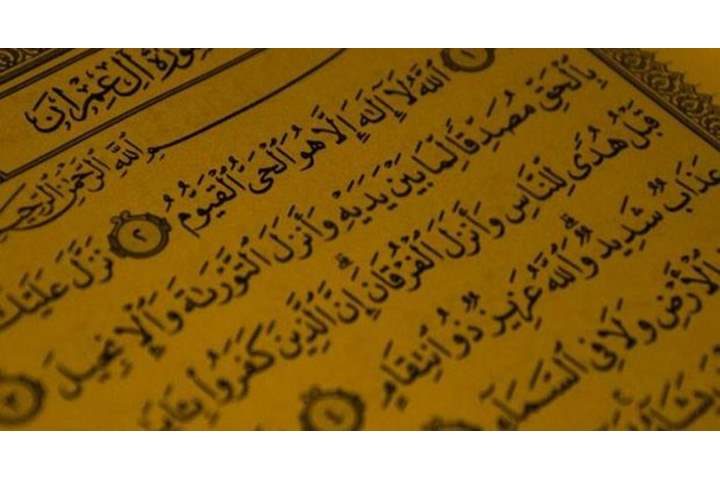 سورة آل عمران
بسم الله الرحمن الرحيم
١ ٱللَّهُ لَآ إِلَٰهَ إِلَّا هُوَ ٱلْحَىُّ ٱلْقَيُّومُ ٢ نَزَّلَ عَلَيْكَ
بِٱلْحَقِّ مُصَدِّقًا لِّمَا بَيْنَ يَدَيْهِ وَأَنزَلَ ٱلتَّوْرَىٰةَ وَٱلْإِنجِيلَ ٣
قَبْلُ هُدًى لِّلنَّاسِ وَأَنزَلَ ٱلْفُرْقَانَ ۗ إِنَّ ٱلَّذِينَ كَفَرُوا۟ بِـَٔايَٰتِ
عَذَابٌ شَدِيدٌ ۗ وَٱللَّهُ عَزِيزٌ ذُو ٱنتِقَامٍ ٤
ٱلْأَرْضِ وَلَا فِى ٱلسَّمَآءِ
يَشَآءُ